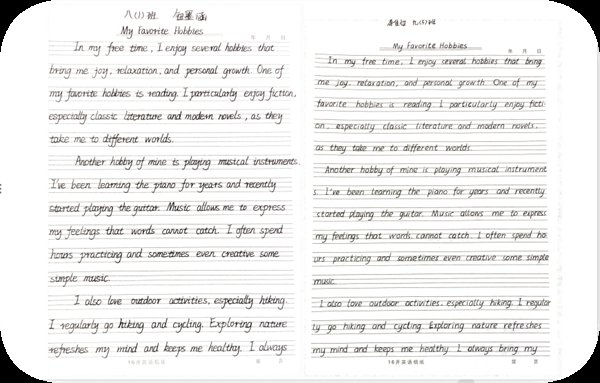 八(1)班 包墨涵
My Favorite Hobbies
年 月 日
In my free time, I enjoy several hobbies that
bring me joy, relaxation, and personal growth. One of
my favorite hobbies is reading. I particularly enjoy fiction,
especially classic literature and modern novels, as they
take me to different worlds.
Another hobby of mine is playing musical instruments.
I've been learning the piano for years and recently
started playing the guitar. Music allows me to express
my feelings that words cannot catch. I often spend
hours practicing and sometimes even creative some
simple music.
I also love outdoor activities, especially hiking.
I regularly go hiking and cycling. Exploring nature
refreshes my mind and keeps me healthy. I always
16开英语稿纸 第 页
九(5)班
My Favorite Hobbies
年 月 日
In my free time, I enjoy several hobbies that bring
me joy, relaxation, and personal growth. One of my
favorite hobbies is reading I particularly enjoy ficti-
on, especially classic literature and modern novels,
as they take me to different worlds.
Another hobby of mine is playing musical instrument
s. I've been learning the piano for years and recently
started playing the guitar. Music allows me to express
my feelings that words cannot catch. I often spend ho
urs practicing and sometimes even creative some simple
music.
I also love outdoor activities, especially hiking, I regular
ly go hiking and cycling Exploring nature refreshes
my mind and keeps me healthy. I always bring my
16开英语稿纸 第 页